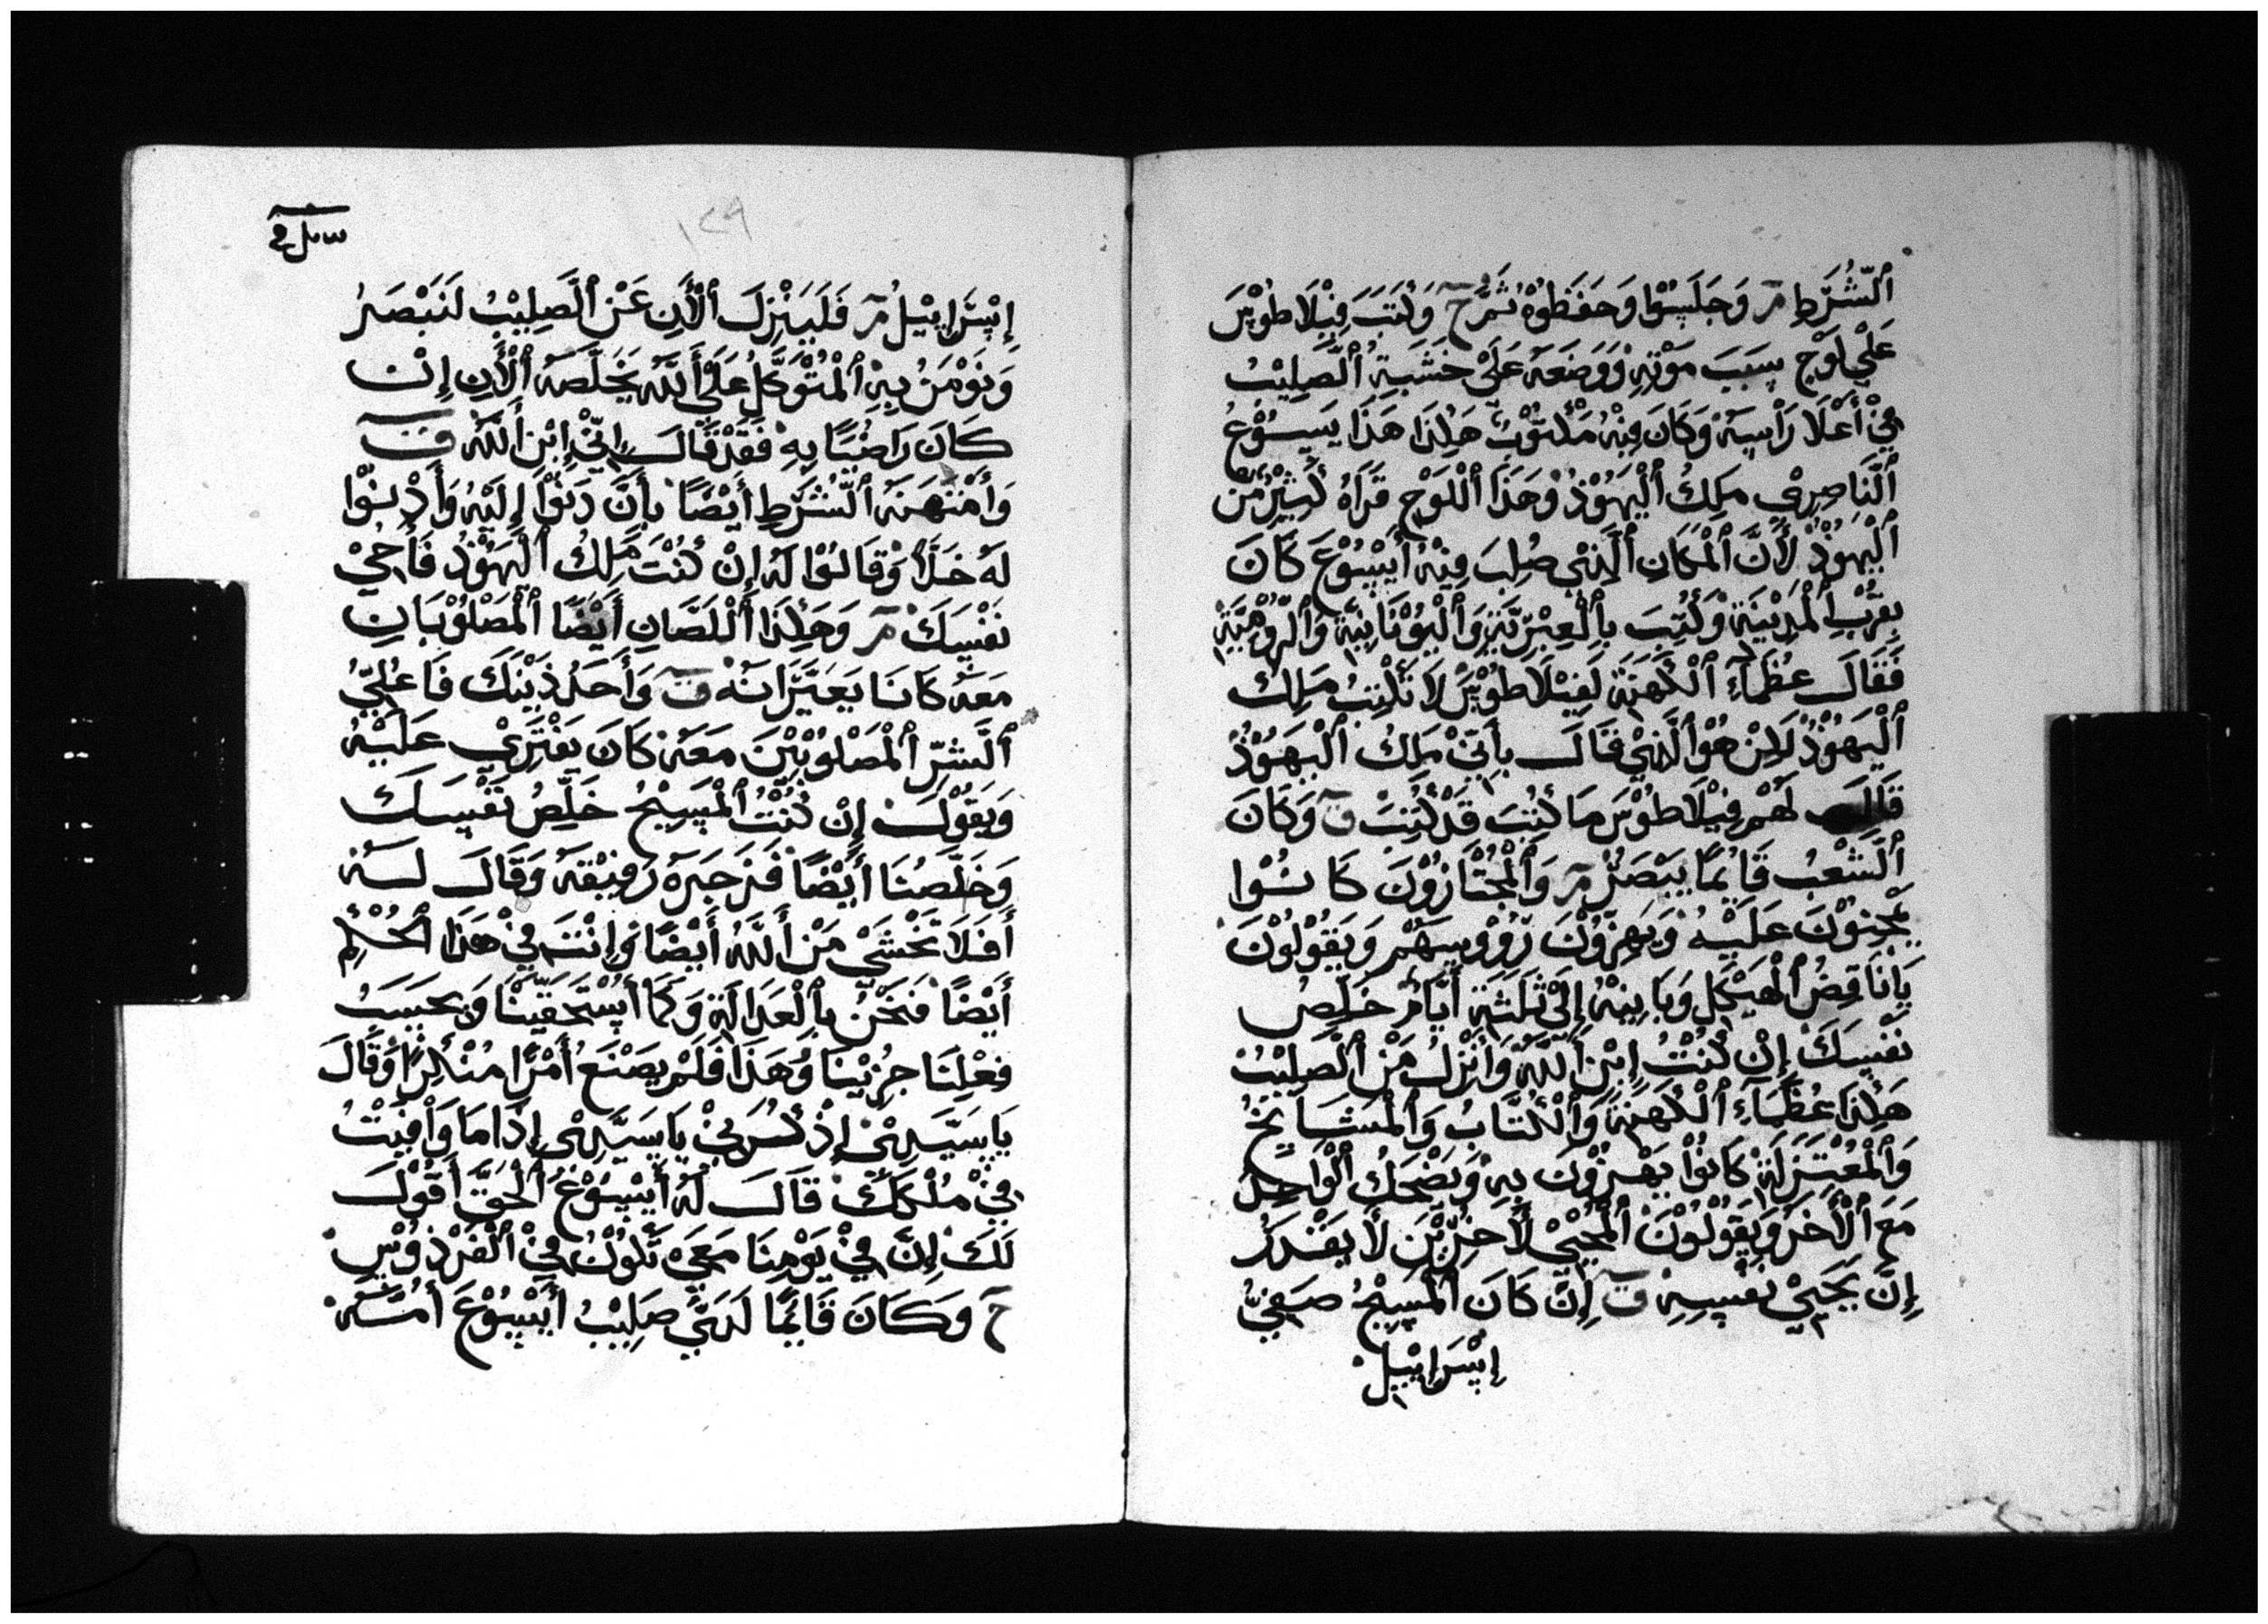 ٱلشُّرَطِ مر وَجَلَسُوْا وَحَفَظُوْهُ ثَمَّ ح وَكَتَبَ فِيْلَاطُوْسَ
عَلَيْ لَوْحٍ سَبَبَ مَوْتِهِ وَوَضَعَهُ عَلَيْ خَشَبَةِ ٱلصَّلِيْبُ
فِيْ أَعْلَا رَأْسِهُ وَكَانَ فِيْهُ مَكْتُوْبٌ هَكِذَا هَذَا يَسُوْعُ
ٱلنَّاصِرِيْ مَلِكُ ٱلْيَهُوْدُ وَهَذَا ٱللَّوْحِ قَرَأَهُ كَثِيْرٌ مِّنَ
ٱلْيَهُوْدُ لأَنَّ ٱلْمَكَانِ ٱلَّذِيْ صُلِبَ فِيْهُ أَيْسُوْعَ كَانَ
بِقُرْبِ ٱلْمَدِيْنَةِ وَكُتِبَ بِٱلْعِبْرِيَّةِ وَٱلْيُوْنَانِيَّةِ وَٱلرُّوْمِيَّةِ
فَقَالَ عُظَمَآءِ ٱلْكَهَنَةِ لَفِيْلَاطُوْسَ لَا تَكْتِبُ مَلِكُ
ٱلْيَهُوْدُ لَاكِنْ هُوْ ٱلَّذِيْ قَالَ بِأَنِّيْ مَلِكُ ٱلْيَهُوْدُ
قَالَ لَهُمْ فِيْلَاطُوْسَ مَا كَتَبْتَ قَدْ كَتَبْتَ ق وَكَانَ
ٱلشَّعْبُ قَائِمًا يَبْصَرُ مر وَٱلْمُجْتَازُوْنَ كَانُوْا
يَجْنُوْنَ عَلَيْهُ وَيَهِزُّوْنَ رُؤُوْسَهُمْ وَيَقُوْلُوْنَ
يَا نَاقِضُ ٱلْهَيْكَلِ وَبَانِيْهُ إِلَيْ ثَلَثَةَ أَيَّامُ خَلِّصُ
نَفْسِكَ إِنْ كُنْتُ إِبْنِ أَللَّهُ وَٱنْزِلُ مَنْ ٱلْصَّلِيْبُ
هَكِذَا عُظَمَآءِ ٱلْكَهَنَةُ وَٱلْكُتَّابُ وَٱلْمَشَايِخُ
وَٱلْمُعْتَزِلَةُ كَانُوْا يَهْزُوْنَ بِهِ وَيَضْحَكُ ٱلْوَاحِدُ
مَعَ ٱلْأَخَرُ وَيَقُوْلُوْنَ ٱلْمُحْيِيْ لَأَخَرِيْنَ لَا يَقْدَرُ
إِنَّ يَحْيِيْ نَفْسِهِ ق إِنَّ كَانَ ٱلْمَسِيْحُ صَفِيُّ
إِيْسَرَايِيْلُ
إِيْسَرَايِيْلُ مر فَلَيَنْزِلَ ٱلْأَنِ عَنْ ٱلصَّلِيْبُ لَنَبْصَرُ
وَنُوْمَنُ بِهِ ٱلْمُتَوَكِّلُ عَلَيْ أَللَّهُ يَخَلِّصَهُ ٱلْأَنِ إِنْ
كَانَ رَاضِيًا بِهِ فَقَدْ قَالَ إِنِّيْ إِبْنِ أَللَّهُ ق
وَأَمْتَهَنَهُ ٱلشُّرَطِ أَيْضًا بِأَنَّ دَنُوْا إِلَيْهُ وَأَدْنُوْا
لَهُ خَلًّا وَقَالُوْا لَهُ إِنْ كُنْتَ مَلِكُ ٱلْيَهُوْدُ فَأَحْيِيْ
نَفْسِكَ مر وَهَكِذَا أَللَّصَّانِ أَيْضًا ٱلْمَصْلُوْبَانِ
مَعَهُ كَانَا يَعَيِّرَانَهُ ق وَأَحَدُ ذَيْنِكَ فَاعُلِيُّ
ٱلشَّرِّ ٱلْمَصْلُوْبَيْنَ مَعَهُ كَانَ يَفْتَرِيْ عَلَيْهُ
وَيَقُوْلُ إِنْ كُنْتُ ٱلْمَسِيْحُ خَلِّصُ نَفْسِكَ
وَخَلِّصُنَا أَيْضًا فَزَجَرَهُ رَفِيْقَهُ وَقَالَ لَهُ
أَفَلَا تَخْشَيْ مَنْ أَللَّهُ أَيْضًا وَإِنْتَ فِيْ هَذَا ٱلْحُكْمِ
أَيْضًا فَنَحْنُ بِٱلْعَدَالَةِ وَكَمَا أَسْتَحَقَّيْنَا وَبِحَسَبِ
فِعْلِنَا جُزِيْنَا وَهَذَا فَلَمْ يَصْنَعُ أَمْرًا مُنْكِرًا وَقَالَ
يَا سَيِّدِيْ إِذْكُرْنِيْ يَا سَيِّدِيْ إِذَا مَا وَافِيْتُ
فِيْ مُلْكِكَ قَالَ لَهُ أَيْسُوْعُ ٱلْحَقَّ أَقُوْلُ
لَكَ إِنَّ فِيْ يَوْمِنَا مَعِيَ تَكُوْنُ فِيْ ٱلْفَرْدُوْسِ
ح وَكَانَ قَائِمًا لَدَيْ صَلِيْبُ أَيْسُوْعَ أُمُّهُ